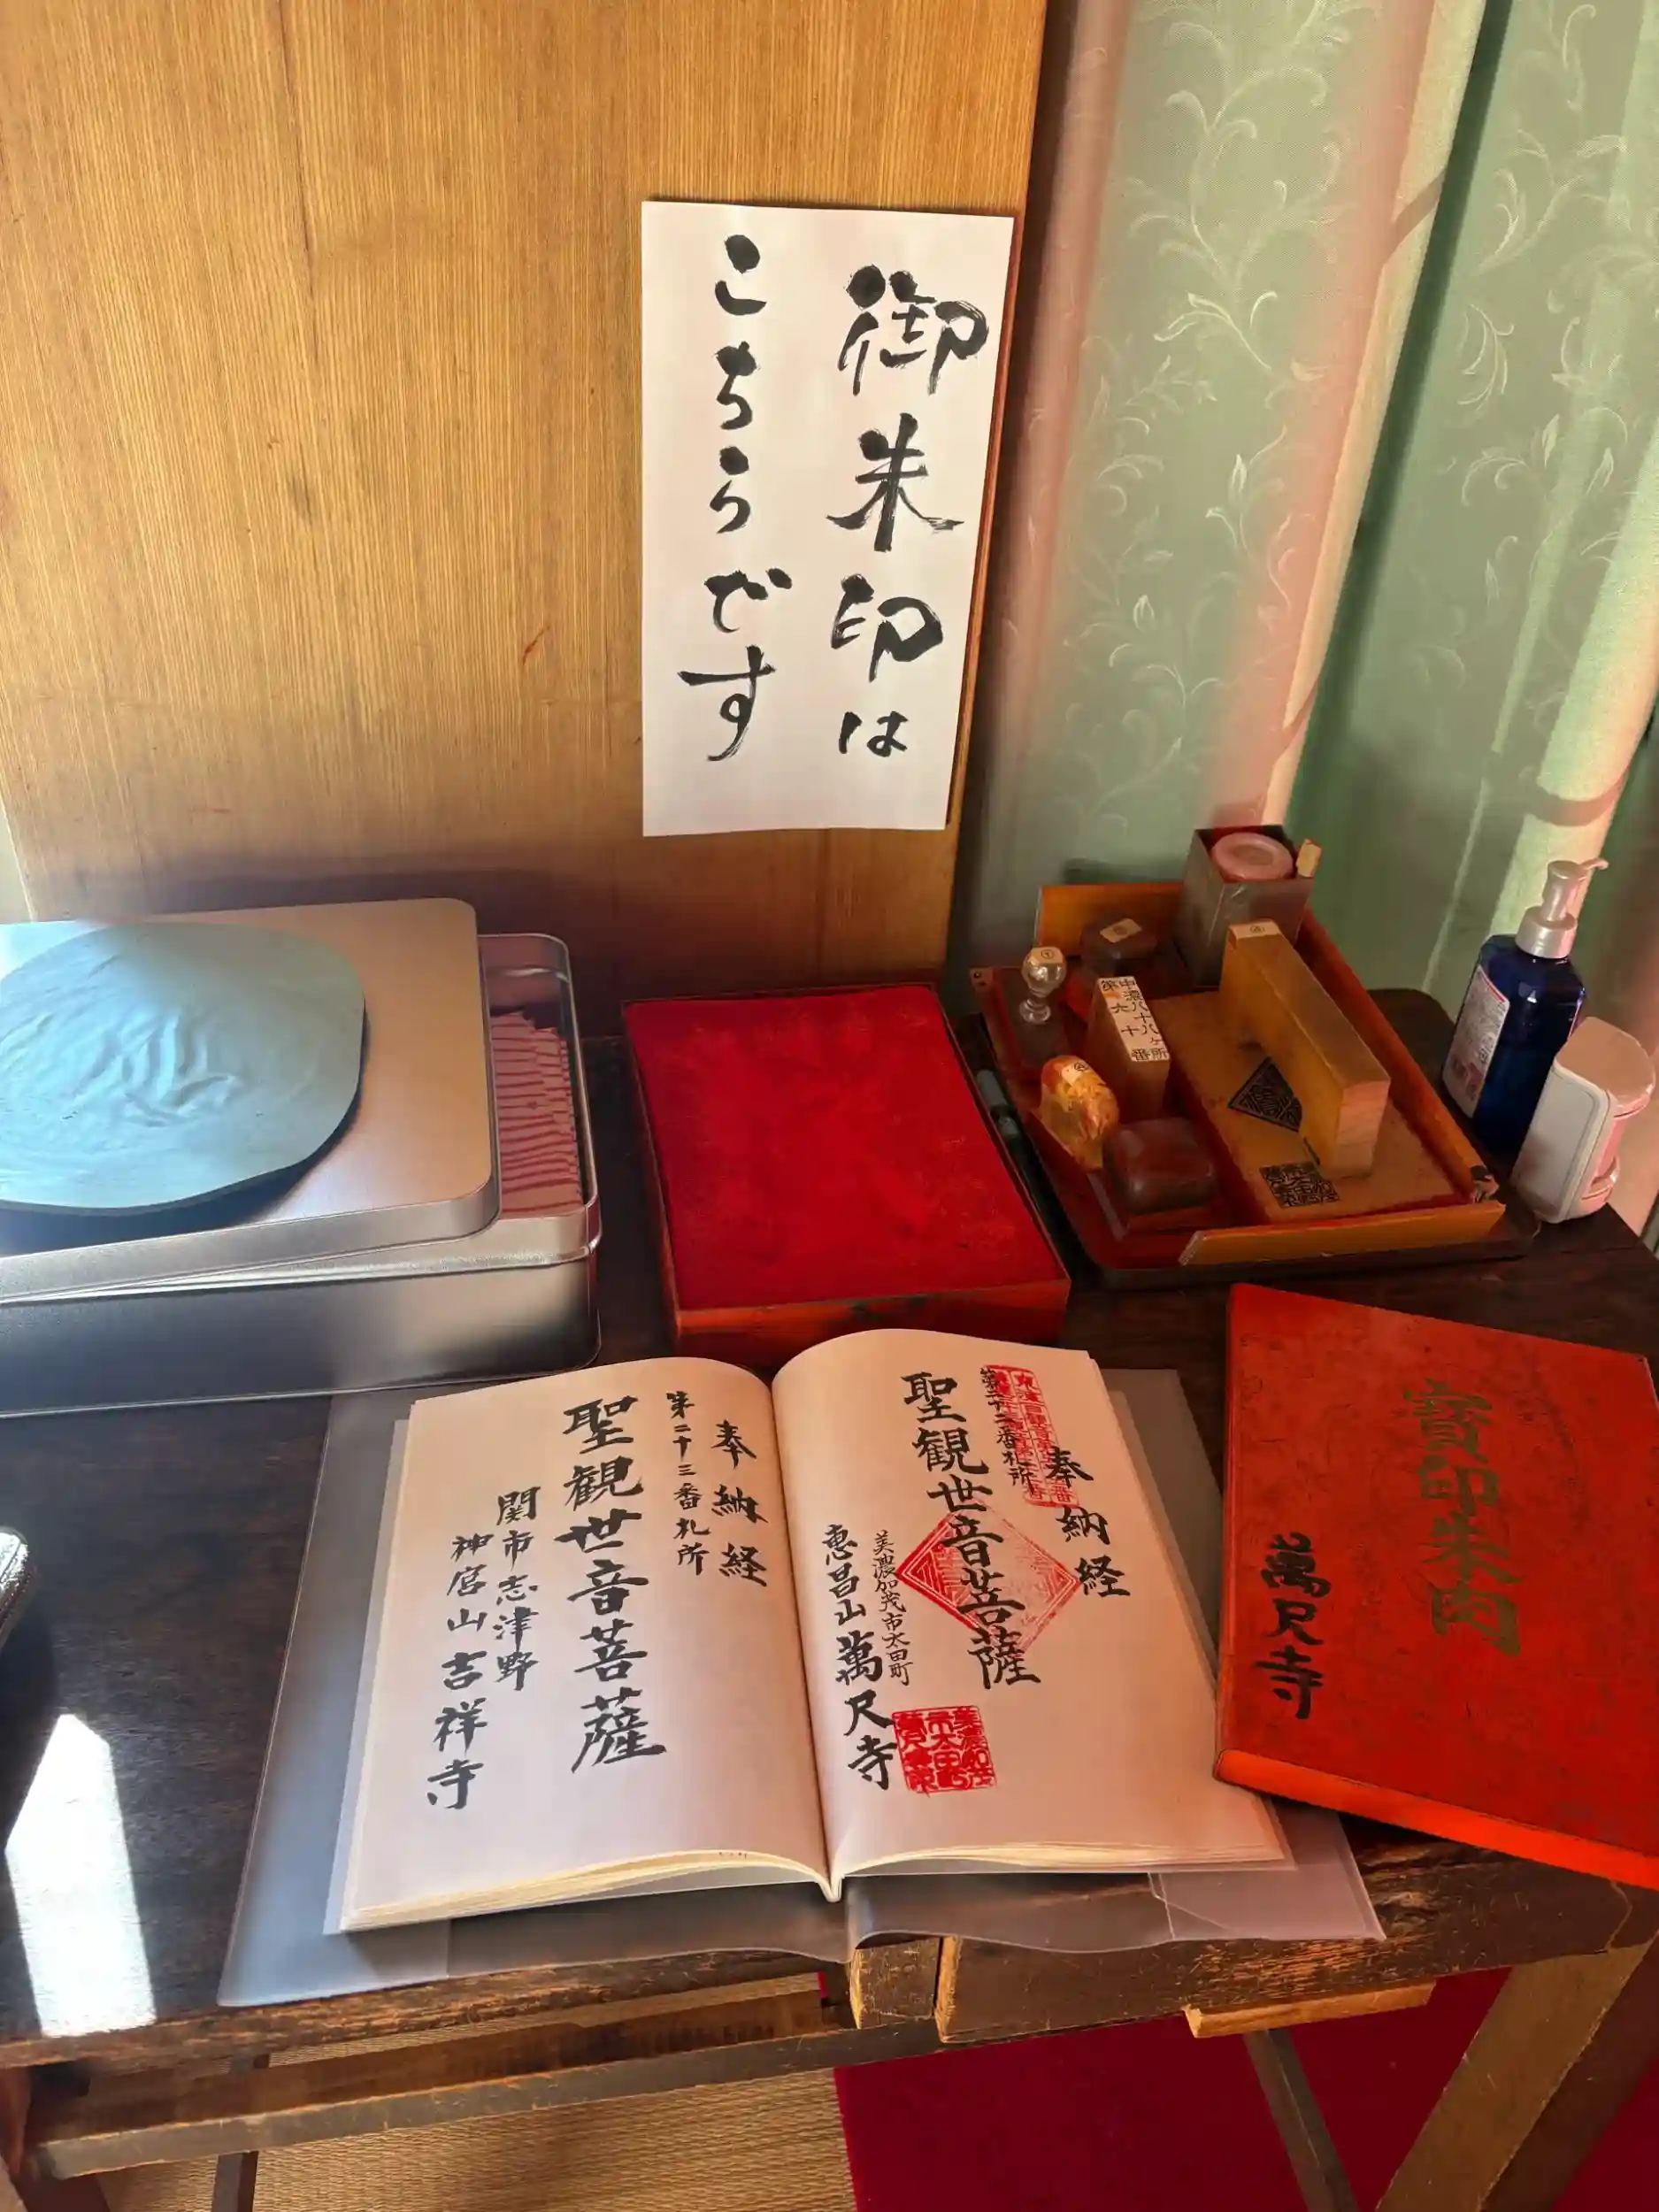 御朱印は
こちらです
中濃八十八ヶ所
第六十番
奉納経
第二十二番札所
聖観世音菩薩
美濃加茂市太田町
恵昌山 萬尺寺
奉納経
第二十三番札所
聖観世音菩薩
関市志津野
神宮山 吉祥寺
寳印朱肉
萬尺寺